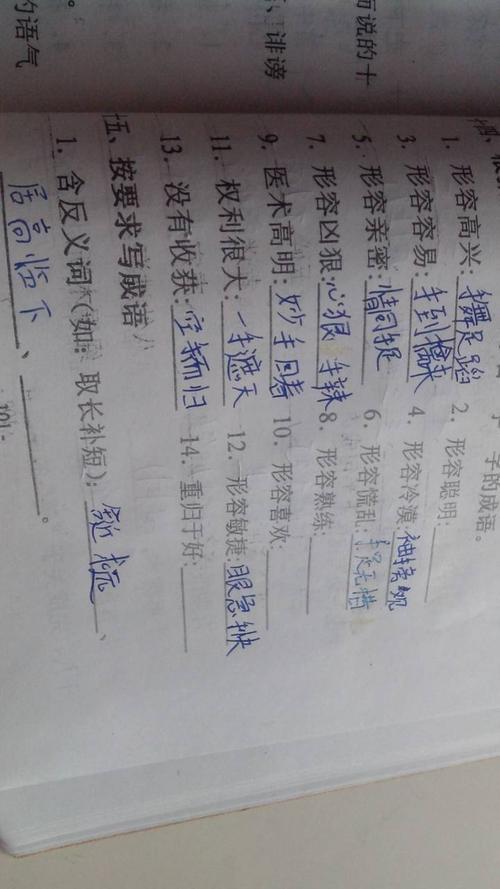 而说的十
、诽谤
的语气
字的成语。
1. 形容高兴:手舞足蹈 2. 形容聪明:
3. 形容容易:手到擒来 4. 形容冷漠:袖手旁观
5. 形容亲密:情同手足 6. 形容慌乱:手足无措
7. 形容凶狠:心狠手辣 8. 形容熟练:
9. 医术高明:妙手回春 10. 形容喜欢:
11. 权利很大:一手遮天 12. 形容敏捷:眼急手快
13. 没有收获:空手而归 14. 重归于好:
五、按要求写成语
1. 含反义词(如:取长补短):舍近求远、
居高临下、。